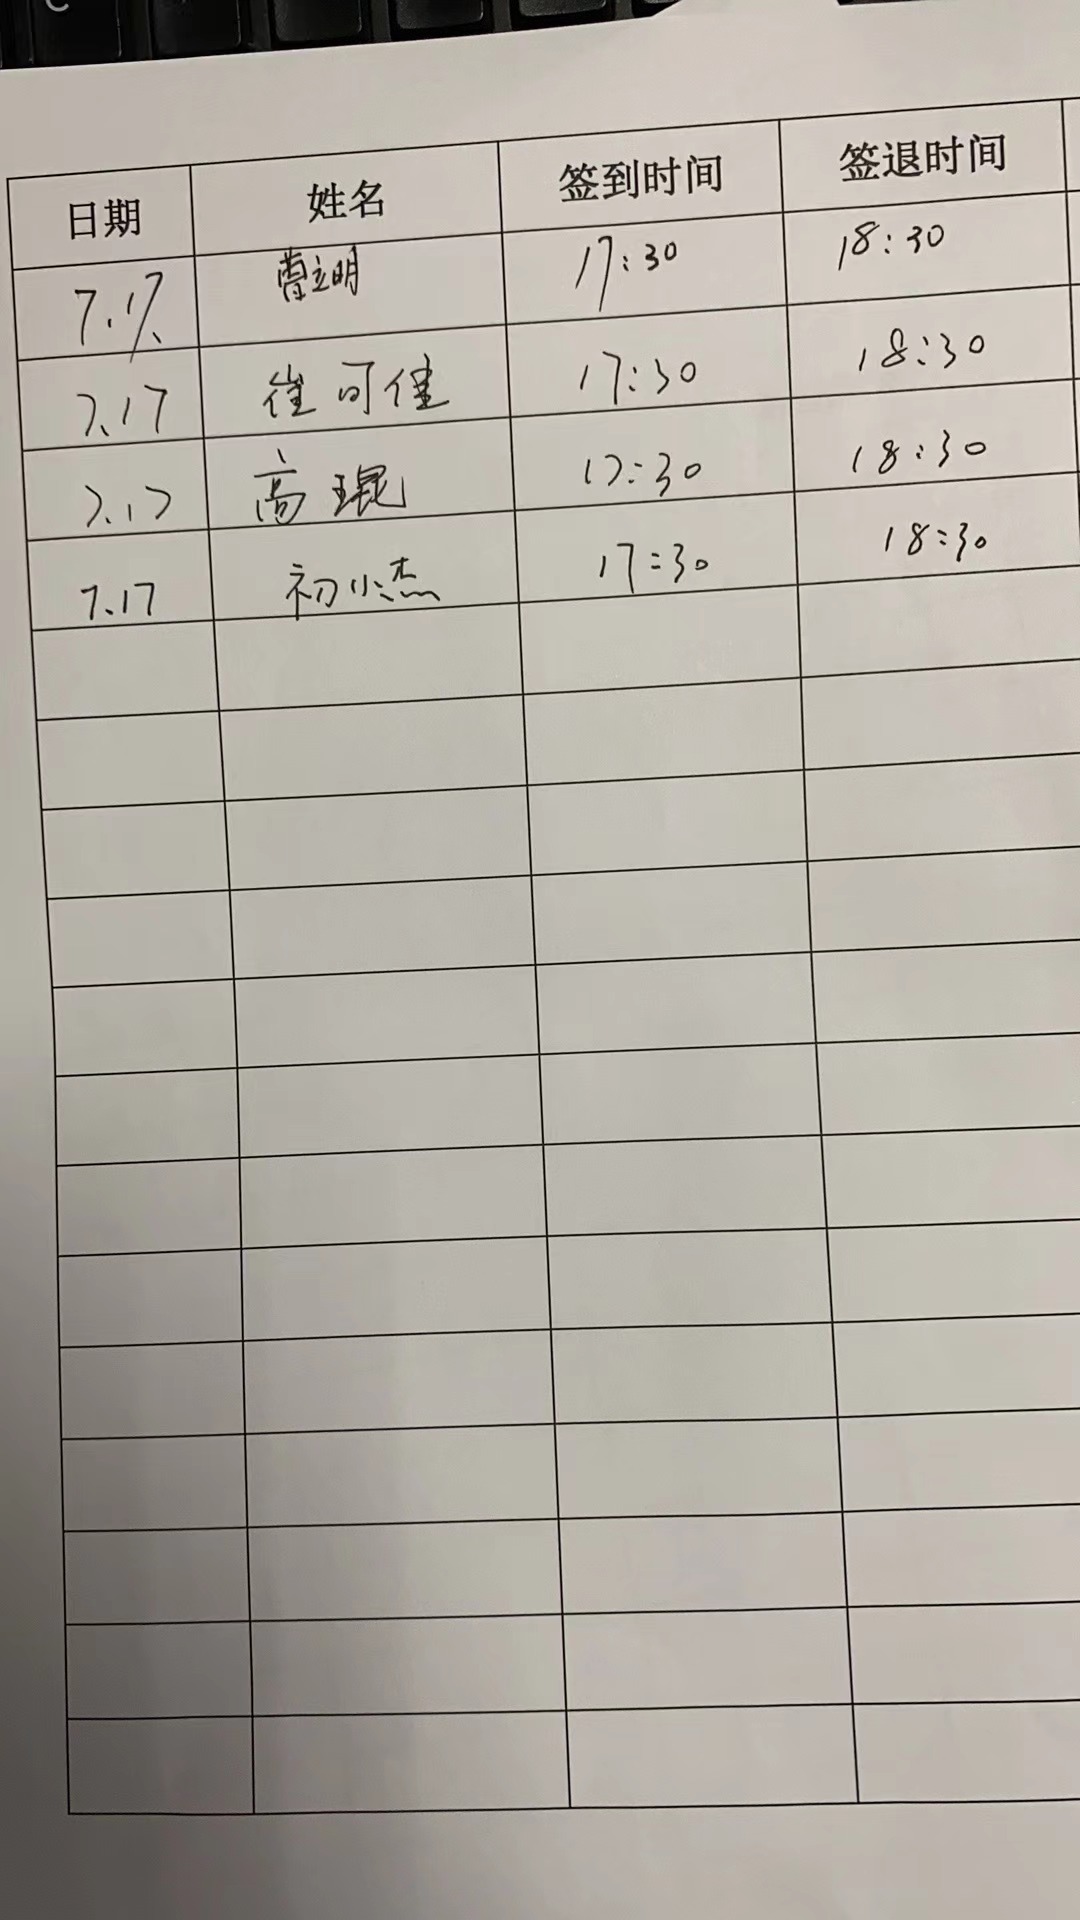 日期 姓名 签到时间 签退时间
7.17 曹立明 17:30 18:30
7.17 崔可佳 17:30 18:30
7.17 高琨 17:30 18:30
7.17 初小杰 17:30 18:30